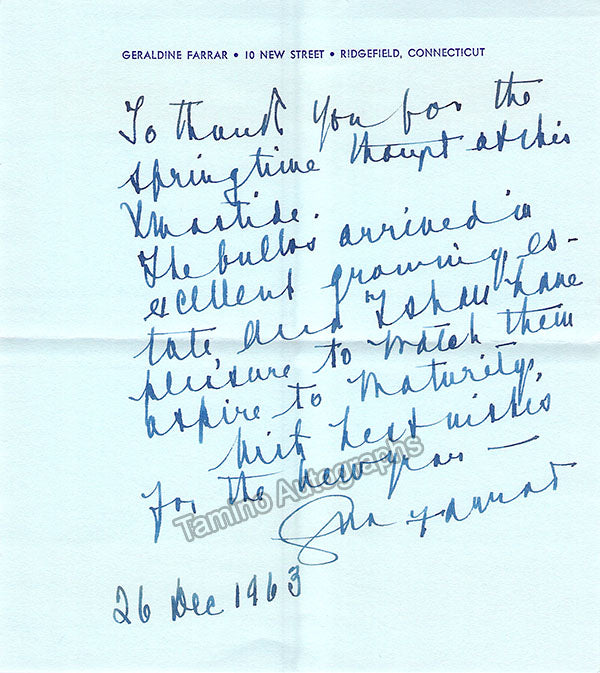 GERALDINE FARRAR • 10 NEW STREET • RIDGEFIELD, CONNECTICUT
To thank you for the
springtime thought at this
Xmastide.
The bulbs arrived in
excellent growing es-
tate, and I shall have
pleasure to watch them
aspire to maturity.
With best wishes
for the new year —
Tamino Autographs
Farrar
26 Dec 1963